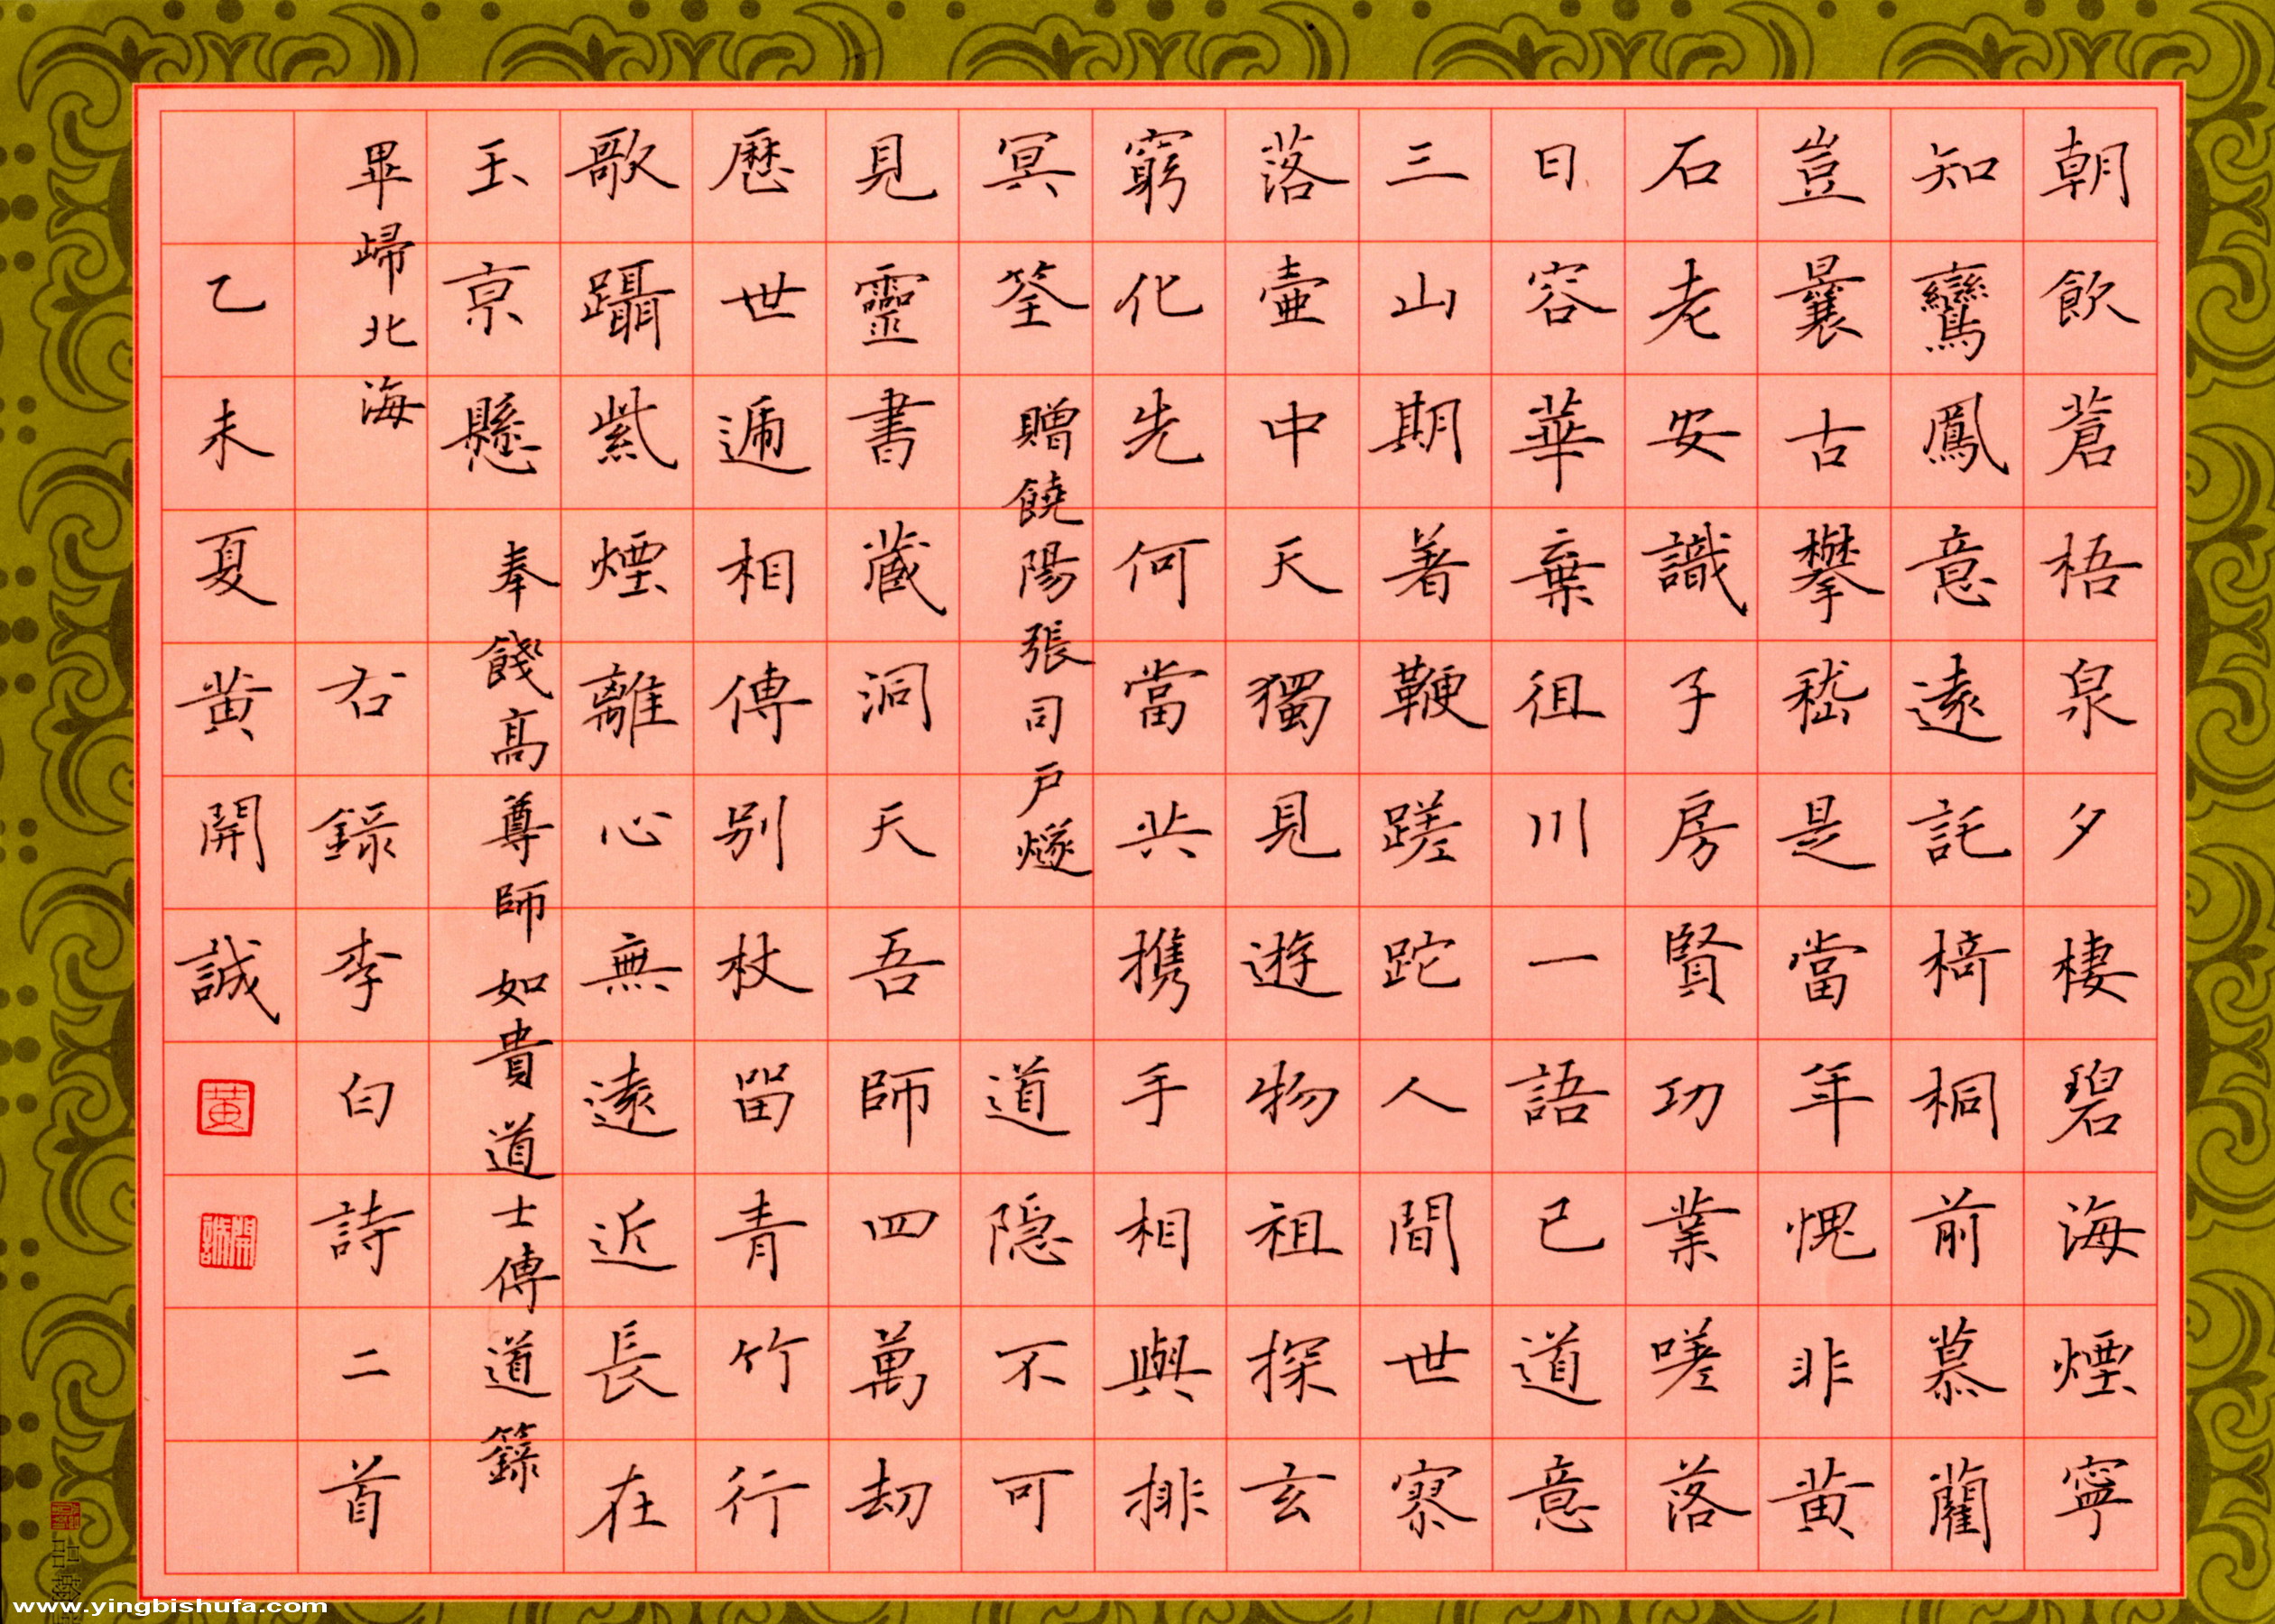 朝飲蒼梧泉夕棲碧海煙寧
知鸞鳳意遠託椅桐前慕藺
豈曩古攀嵇是當年愧非黄
石老安識子房賢功業嗟落
日容華棄徂川一語已道意
三山期著鞭蹉跎人間世寥
落壺中天獨見遊物祖探玄
窮化先何當共携手相與排
冥筌 贈饒陽張司户燧 道隐不可
見靈書藏洞天吾師四萬劫
厯世遞相傳别杖留青竹行
歌躡紫煙離心無遠近長在
玉京懸 奉餞髙尊師如貴道士傳道籙
畢歸北海 右録李白詩二首
乙未夏黄開誠
黄
開誠
www.yingbishufa.com